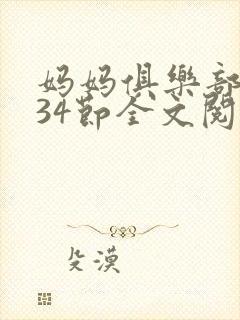 妈妈俱樂部
34节全文閱
殳漠